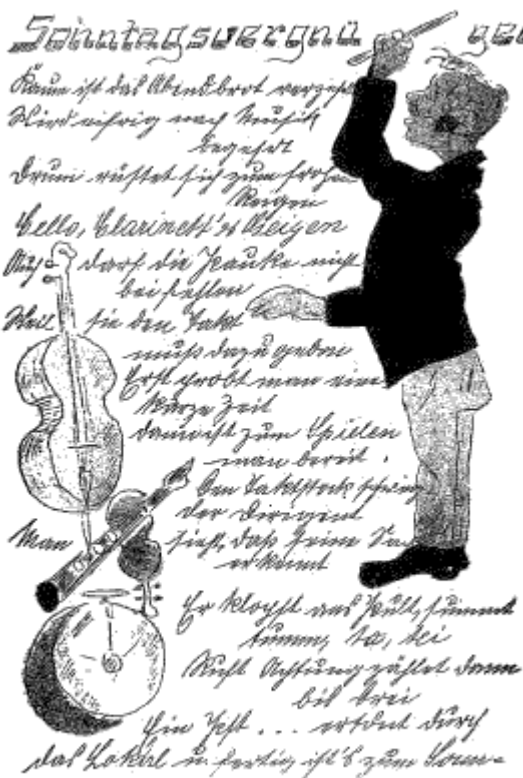 Sonntagsvergnü gen
Kaum ist das Abendbrot verzehrt
Wird eifrig nach Musik
begehrt
Drum rüstet sich zum frohen
Reigen
Cello, Clarinett' u Geigen
Auch darf die Pauke nicht
bei fehlen
Weil sie den Takt
muß dazu geben
Erst probt man eine
kurze Zeit
dann ist zum Spielen
man bereit.
Den Taktstock schwingt
der Dirigent
Man sieht, daß seine
erkennt
Er klopft aufs Pult, summt
summ, ta, tei
Ruft Achtung zählet dann
bis drei
Ein Jeft ... ertönt durch
das Lokal u. fertig ist's zum